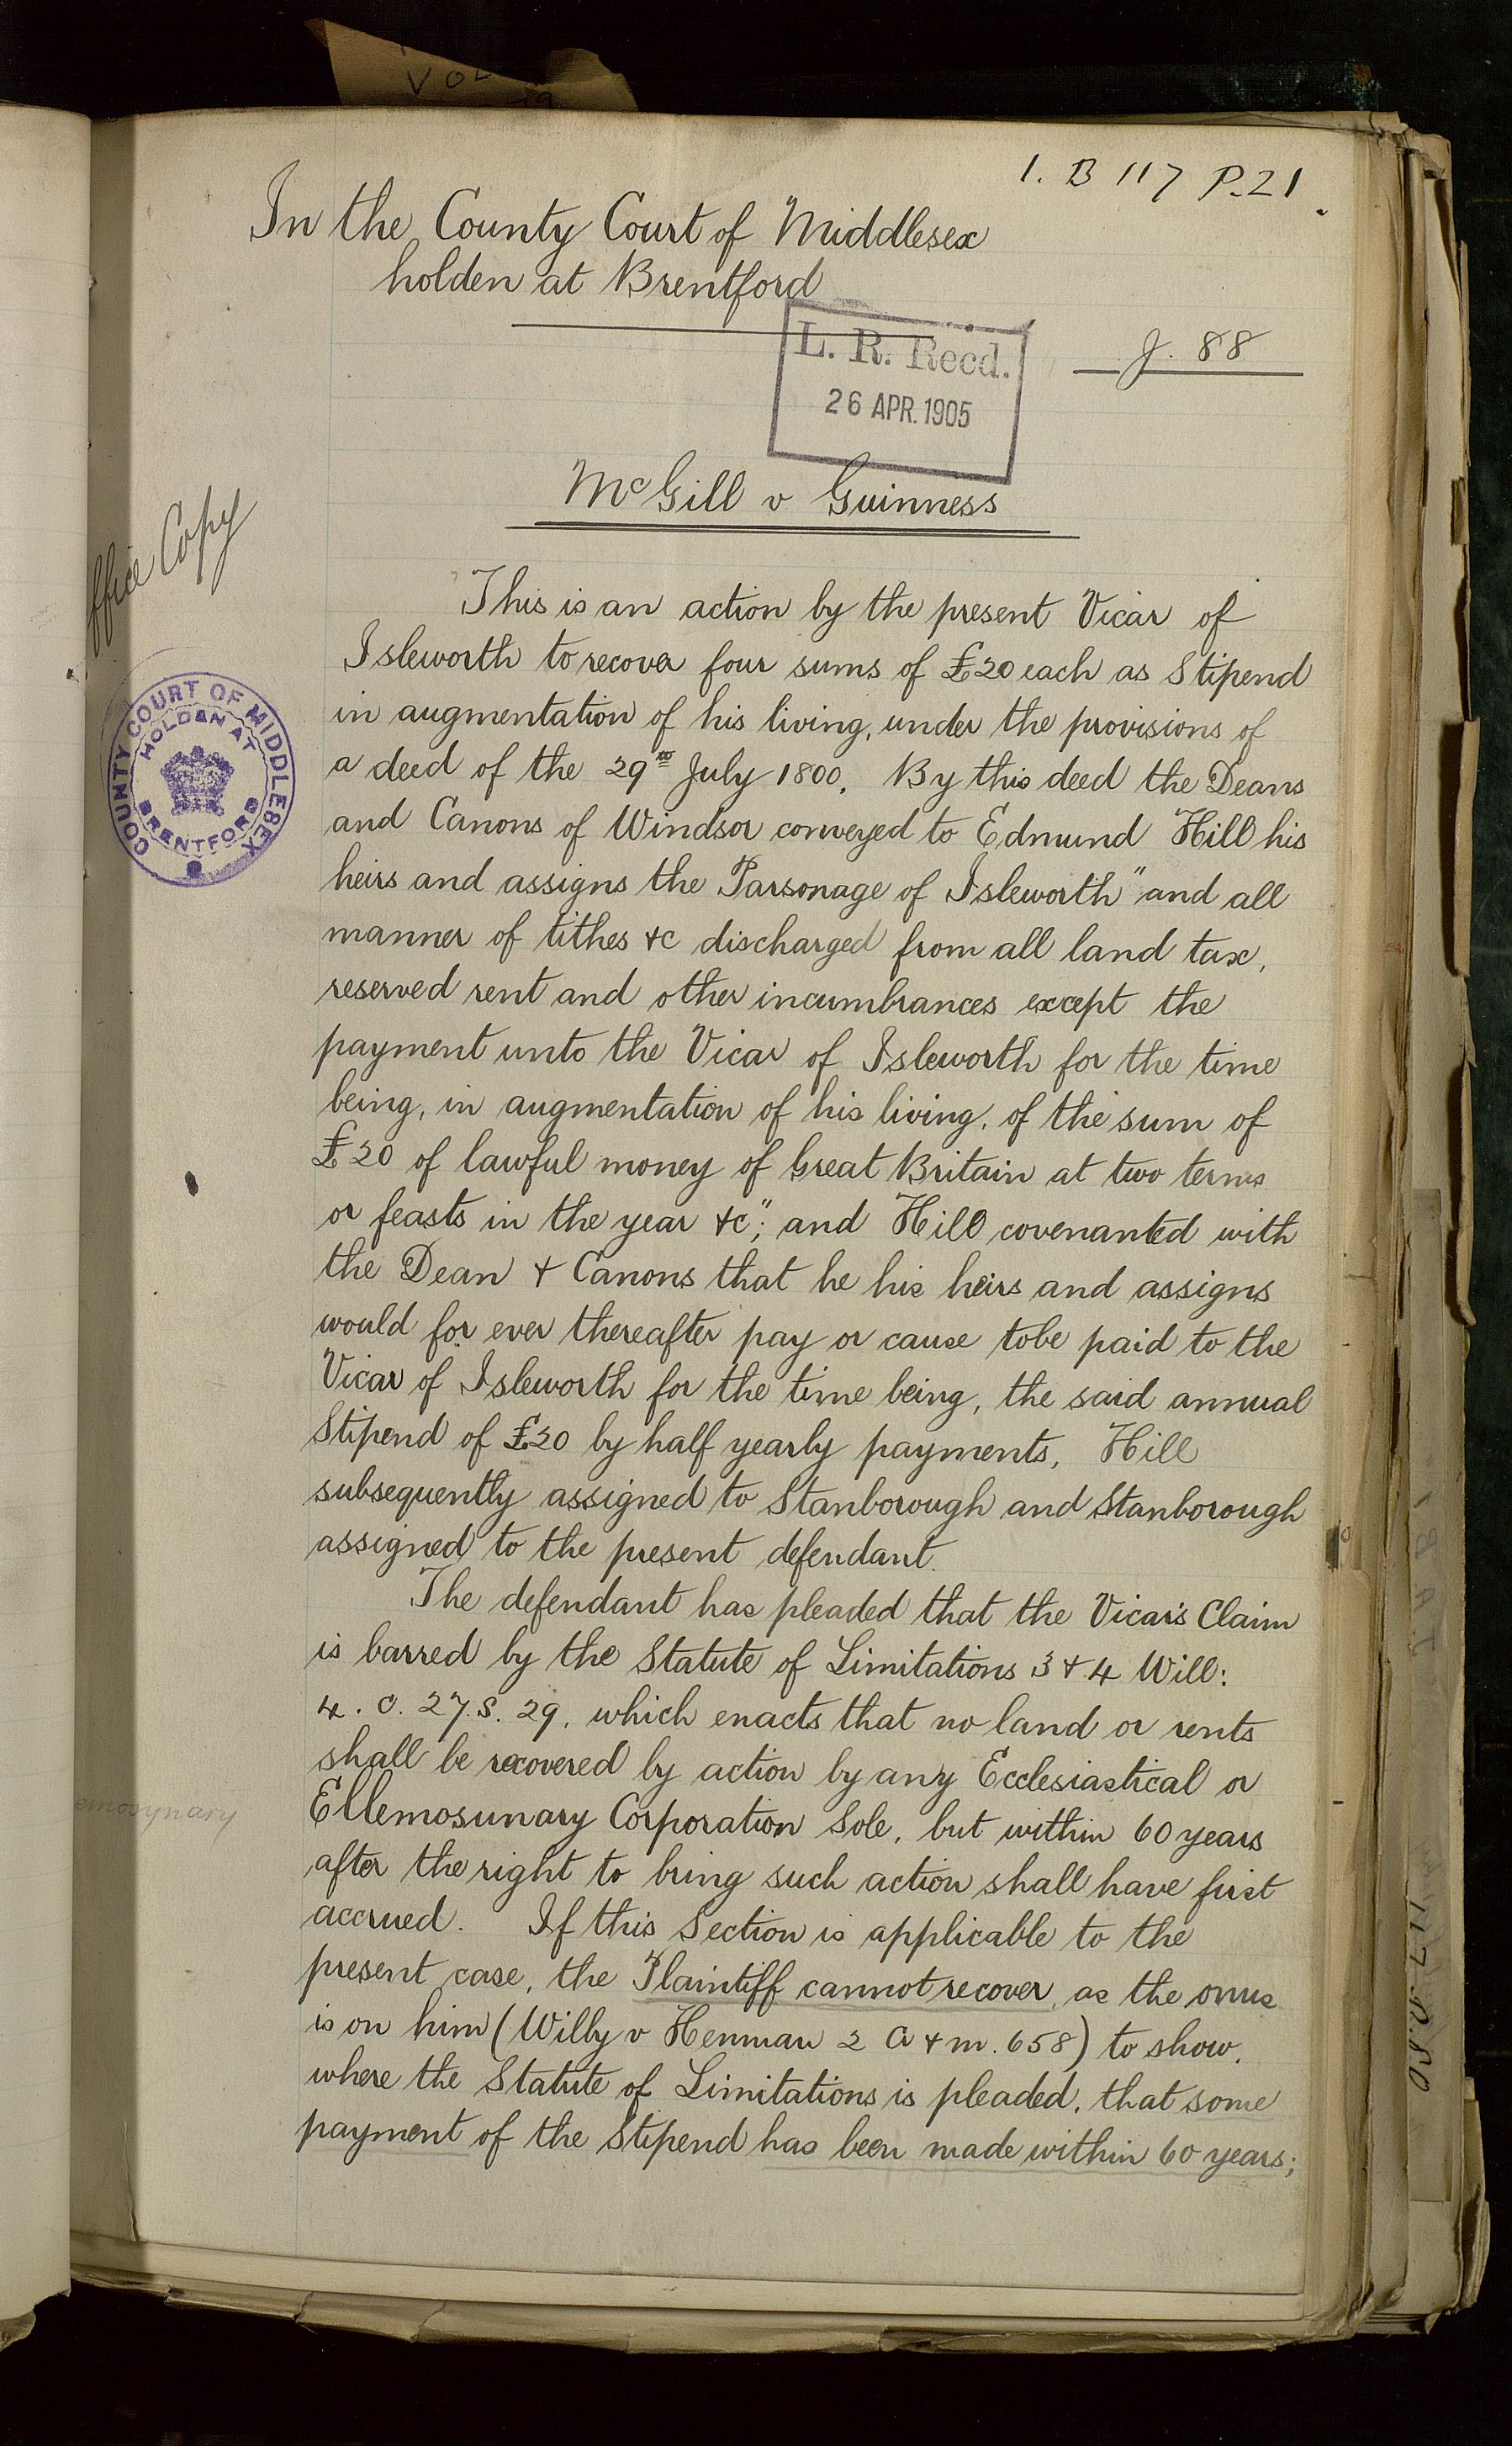 1. B 117 P. 21.
In the County Court of Middlesex
holden at Brentford
L. R. Recd.
26 APR. 1905
J. 88
McGill v Guinness
ffice Copy
COUNTY COURT OF MIDDLESEX
HOLDEN AT
BRENTFORD
This is an action by the present Vicar of
Isleworth to recover four sums of £20 each as Stipend
in augmentation of his living, under the provisions of
a deed of the 29th July 1800. By this deed the Deans
and Canons of Windsor conveyed to Edmund Hill his
heirs and assigns the Parsonage of Isleworth "and all
manner of tithes &c discharged from all land tax,
reserved rent and other incumbrances except the
payment unto the Vicar of Isleworth for the time
being, in augmentation of his living, of the sum of
£20 of lawful money of Great Britain at two terms
or feasts in the year &c"; and Hill covenanted with
the Dean & Canons that he his heirs and assigns
would for ever thereafter pay or cause tobe paid to the
Vicar of Isleworth for the time being, the said annual
Stipend of £20 by half yearly payments, Hill
subsequently assigned to Stanborough and Stanborough
assigned to the present defendant.
The defendant has pleaded that the Vicar's Claim
is barred by the Statute of Limitations 3 & 4 Will:
4. c. 27. S. 29. which enacts that no land or rents
shall be recovered by action by any Ecclesiastical or
Ellemosunary Corporation Sole, but within 60 years
emosynary
after the right to bring such action shall have first
accrued. If this Section is applicable to the
present case, the Plaintiff cannot recover, as the onus
is on him (Willy v Henman 2 Cr & m. 658) to show,
where the Statute of Limitations is pleaded, that some
payment of the Stipend has been made within 60 years;